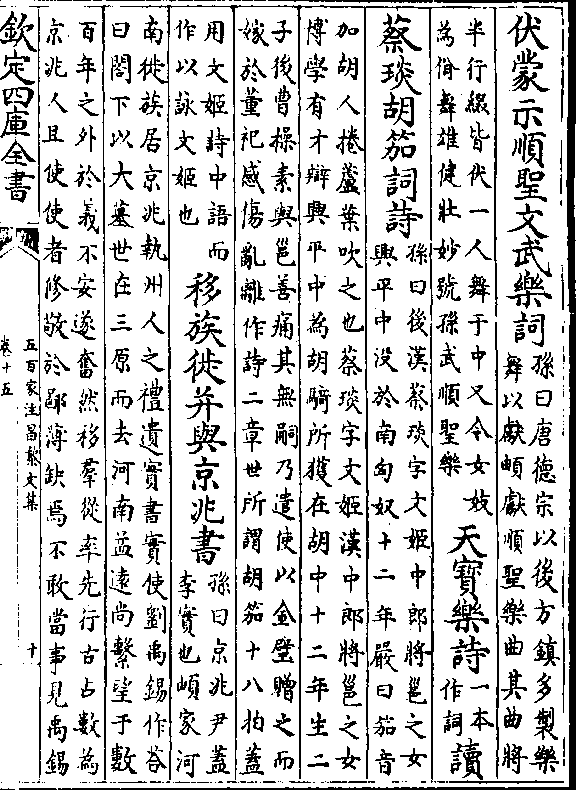 伏蒙示順聖文武樂詞孫曰唐德宗以後方鎮多製樂
舞以獻頔獻順聖樂曲其曲將
半行綴皆伏一人舞于中又令女妓
為佾舞雄健壯妙號孫武順聖樂
天寶樂詩一本
作詞
讀
蔡琰胡笳詞詩孫曰後漢蔡琰字文姬中郎將邕之女
興平中没於南匈奴十二年嚴曰笳音
加胡人捲蘆葉吹之也蔡琰字文姬漢中郎將邕之女
博學有才辯興平中為胡騎所獲在胡中十二年生二
子後曹操素與邕善痛其無嗣乃遣使以金璧贈之而
嫁於董祀感傷亂離作詩二章世所謂胡笳十八拍蓋
用文姬詩中語而
作以詠文姬也
移族徙并與京兆書孫曰京兆尹蓋
李實也頔家河
南徙族居京兆執州人之禮遺實書實使劉禹錫作荅
曰閤下以大墓世在三原而去河南益遠尚繫望于數
百年之外於義不安遂奮然移羣從率先行古占數為
京兆人且使使者修敬於鄙薄缺焉不敢當事見禹錫
欽定四庫全書
五百家注昌黎文集
卷十五
十